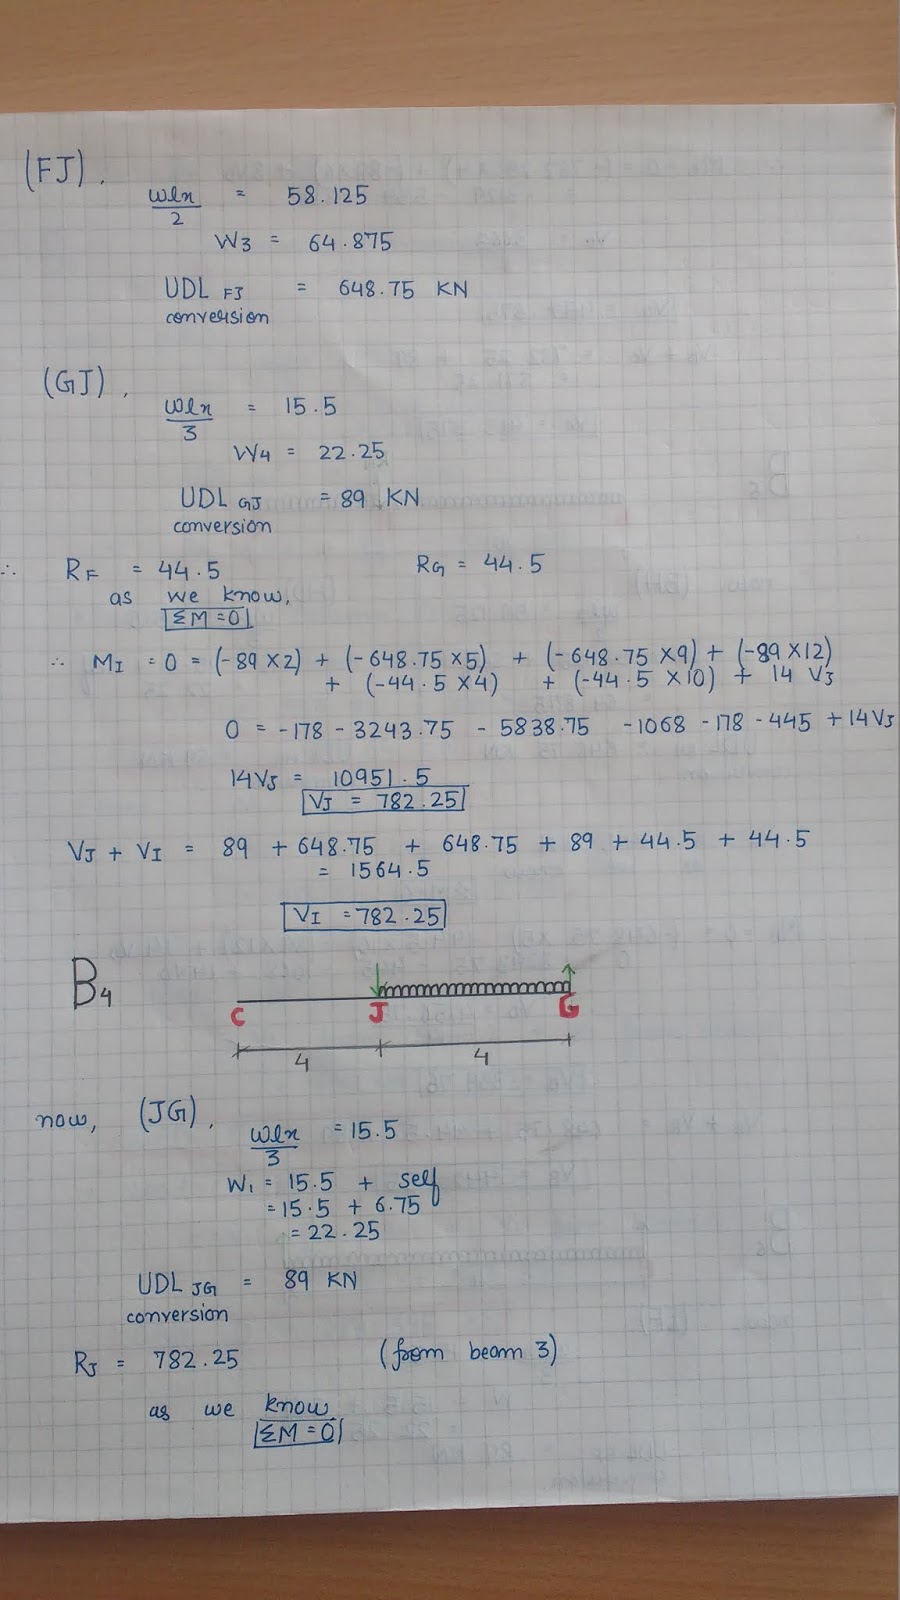 (FJ).
wlx/2 = 58.125
W3 = 64.875
UDL FJ = 648.75 KN
conversion
(GJ).
wlx/3 = 15.5
W4 = 22.25
UDL GJ = 89 KN
conversion
∴ RF = 44.5 RG = 44.5
as we know,
ΣM=0
∴ MI = 0 = (-89×2) + (-648.75×5) + (-648.75×9) + (-89×12)
+ (-44.5×4) + (-44.5×10) + 14 VJ
0 = -178 - 3243.75 - 5838.75 -1068 -178 -445 +14VJ
14VJ = 10951.5
VJ = 782.25
VJ + VI = 89 + 648.75 + 648.75 + 89 + 44.5 + 44.5
= 1564.5
VI = 782.25
B4
C J G
4 4
now, (JG).
wlx/3 = 15.5
W1 = 15.5 + self
= 15.5 + 6.75
= 22.25
UDL JG = 89 KN
conversion
RJ = 782.25 (from beam 3)
as we know
ΣM=0